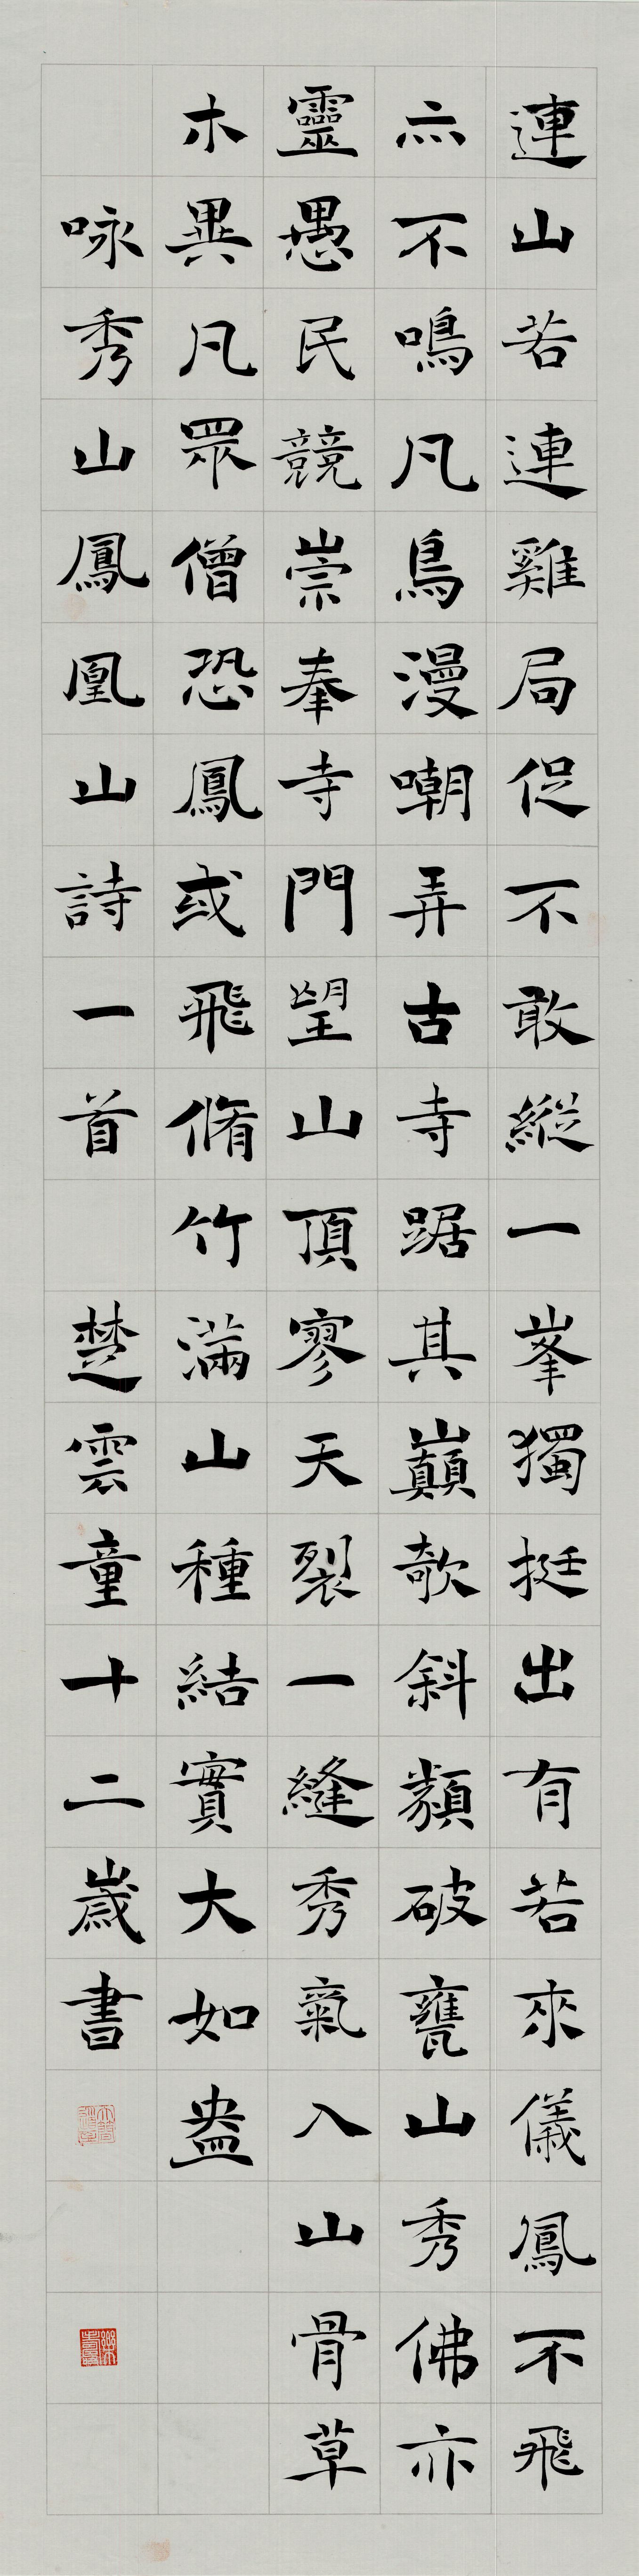 連山若連雞局促不敢縱一峯獨挺出有若來儀鳳不飛
亦不鳴凡鳥漫嘲弄古寺踞其巔欹斜類破甕山秀佛亦
靈愚民競崇奉寺門望山頂寥天裂一縫秀氣入山骨草
木異凡眾僧恐鳳或飛脩竹滿山種結實大如盎
咏秀山鳳凰山詩一首 楚雲童十二歲書